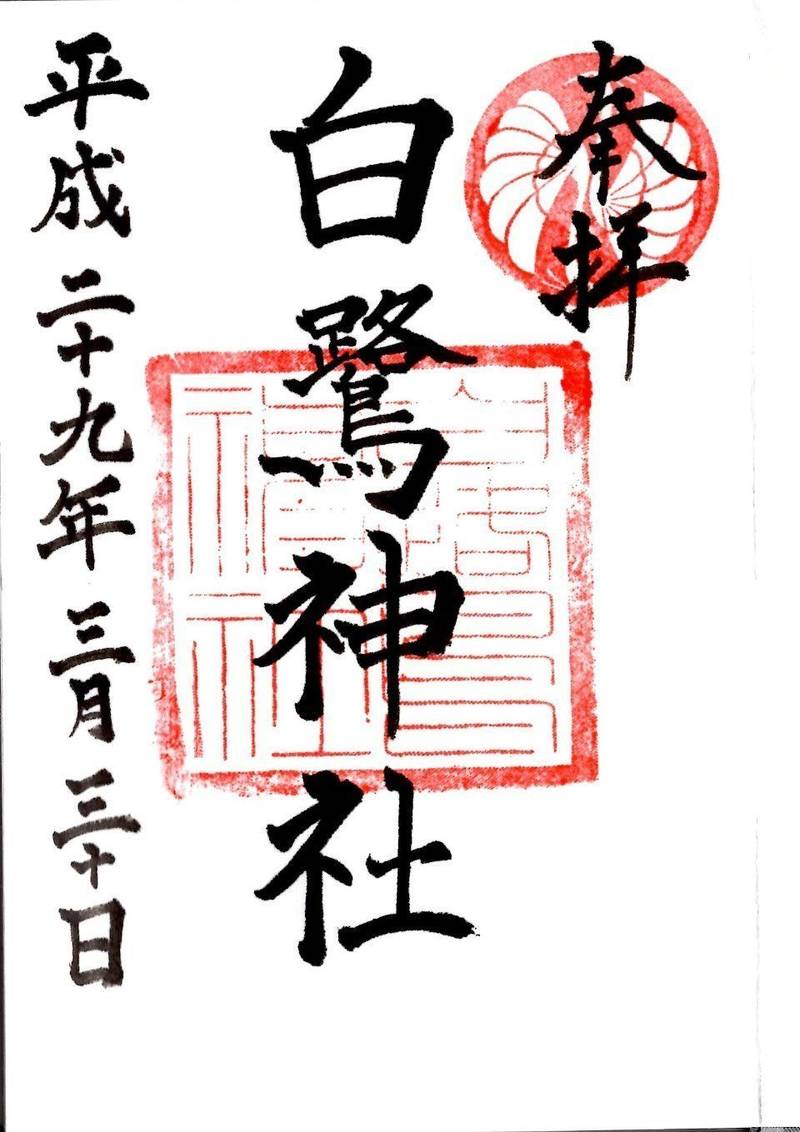 奉拝
白鷺神社
白鷺神社
平成二十九年三月三十日